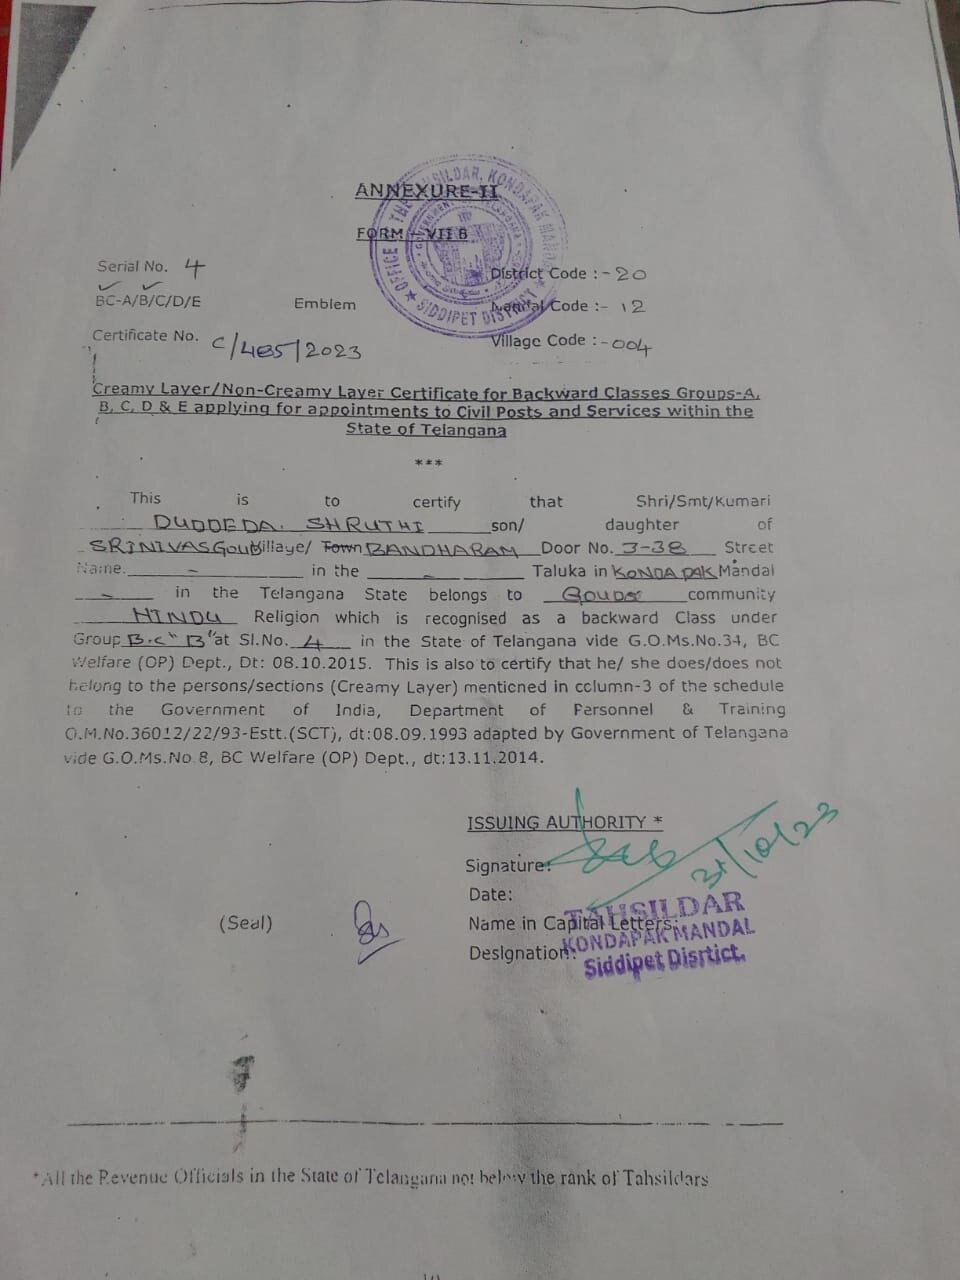 ANNEXURE-II
FORM - VII B
OFFICE OF THE TAHSILDAR, KONDAPAK MANDAL
SIDDIPET DISTRICT
Serial No. 4
District Code :- 20
BC-A/B/C/D/E
Emblem
Mandal Code :- 12
Certificate No. C/485/2023
Village Code :- 004
Creamy Layer/Non-Creamy Layer Certificate for Backward Classes Groups-A,
B, C, D & E applying for appointments to Civil Posts and Services within the
State of Telangana
***
This is to certify that Shri/Smt/Kumari
DUDDEDA. SHRUTHI son/ daughter of
SRINIVAS GOUD Village/ Town BANDHARAM Door No. 3-38 Street
Name. - in the - Taluka in KONDAPAK Mandal
- in the Telangana State belongs to Gouda community
HINDU Religion which is recognised as a backward Class under
Group B.C "B" at Sl.No. 4 in the State of Telangana vide G.O.Ms.No.34, BC
Welfare (OP) Dept., Dt: 08.10.2015. This is also to certify that he/ she does/does not
belong to the persons/sections (Creamy Layer) mentioned in column-3 of the schedule
to the Government of India, Department of Personnel & Training
O.M.No.36012/22/93-Estt.(SCT), dt:08.09.1993 adapted by Government of Telangana
vide G.O.Ms.No 8, BC Welfare (OP) Dept., dt:13.11.2014.
ISSUING AUTHORITY *
Signature:
31/10/23
Date:
(Seal)
Name in Capital Letters:
TAHSILDAR
Designation:
KONDAPAK MANDAL
Siddipet Disrtict.
*All the Revenue Officials in the State of Telangana not below the rank of Tahsildars